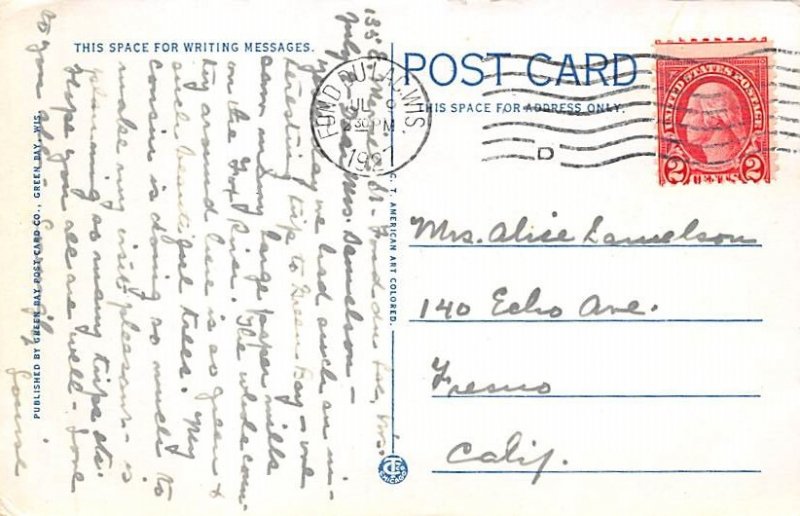 THIS SPACE FOR WRITING MESSAGES.
POST CARD
THIS SPACE FOR ADDRESS ONLY.
FOND DU LAC, WIS.
JUL 6
230 PM
192
D
UNITED STATES POSTAGE
2 CENTS 2
Mrs. Alice Samelson
140 Echo Ave.
Fresno
Calif.
135 E St. - Fond du Lac, Wis.
July Dear Mrs. Samelson -
day we had such an in-
teresting trip to Green Bay - we
saw many large paper mills
on the Fox River. The whole coun-
try around here is so green &
such beautiful trees. My
cousin is doing so much to
make my visit pleasant - is
planning so many trips etc.
Hope you all are well - Love
to you all - Sincerely
Louise
PUBLISHED BY GREEN BAY POST CARD CO., GREEN BAY, WIS.
C. T. AMERICAN ART COLORED.
CHICAGO